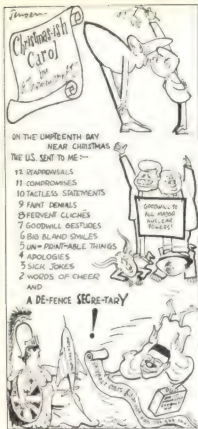 Jensen
Christmas-ish
Carol
ON THE UMPTEENTH DAY
NEAR CHRISTMAS
THE U.S. SENT TO ME:-
12 REAPPRAISALS
11 COMPROMISES
10 TACTLESS STATEMENTS
9 FAINT DENIALS
8 FERVENT CLICHÉS
7 GOODWILL GESTURES
6 BIG BLAND SMILES
5 UN-PRINT-ABLE THINGS
4 APOLOGIES
3 SICK JOKES
2 WORDS OF CHEER
AND
A DE-FENCE SECRE-TARY
!
GOODWILL TO
ALL MAJOR
NUCLEAR
POWERS!